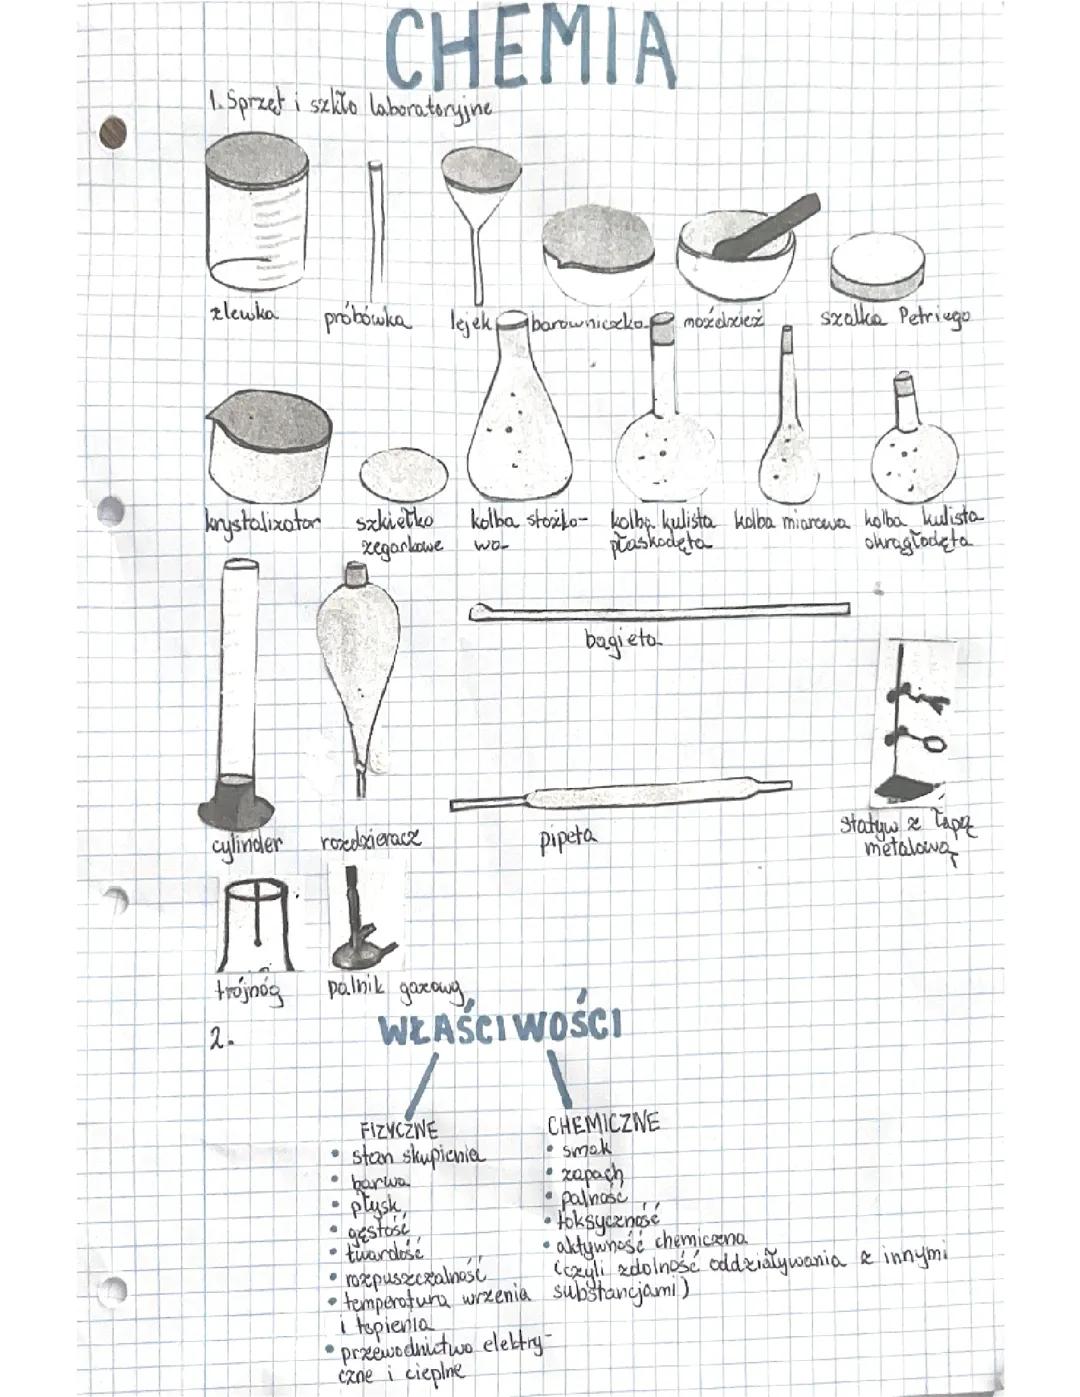 CHEMIA
1. Sprzęt i szkło laboratoryjne
zlewka próbówka lejek parowniczka moździeż szalka Petriego
krystalizator szkiełko kolba stożko- kolba kulista kolba miarowa kolba kulista
zegarkowe wa płaskodęta okrągłodęta
bagieta
cylinder rozdzieracz pipeta statyw z łapą
metalową
trójnóg palnik gazowy
2. WŁAŚCIWOŚCI
FIZYCZNE CHEMICZNE
• stan skupienia • smak
• barwa • zapach
• płysk • palność
• gęstość • toksyczność
• twardość • aktywność chemiczna
• rozpuszczalność (czyli zdolność oddziaływania z innymi
• temperatura wrzenia substancjami)
i topienia
• przewodnictwo elektry-
czne i cieplne